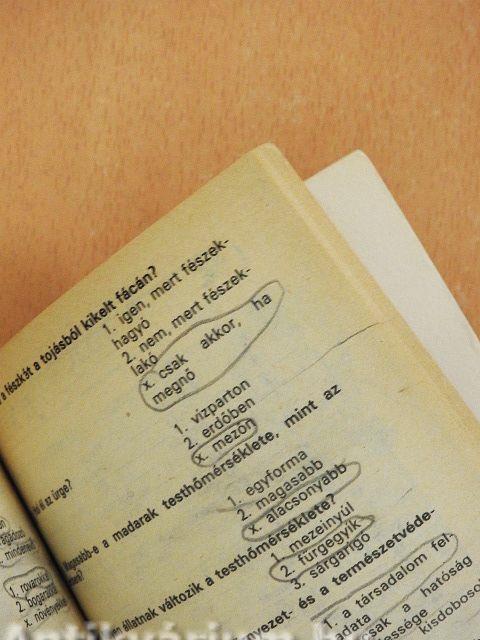 a fészkét a tojásból kikelt fácán?
1. igen, mert fészek-
hagyó
2. nem, mert fészek-
lakó
x. csak akkor, ha
megnő
él az ürge?
1. vízparton
2. erdőben
x. mezőn
Magasabb-e a madarak testhőmérséklete, mint az
1. egyforma
2. magasabb
x. alacsonyabb
állatnak változik a testhőmérséklete?
1. mezeinyúl
2. fürgegyík
3. sárgarigó
és a természetvéde-
1. a társadalom fel-
data
csak a hatóság
1. rovarokkal
2. bogarakkal
x. növényekkel
Antikvárium.hu